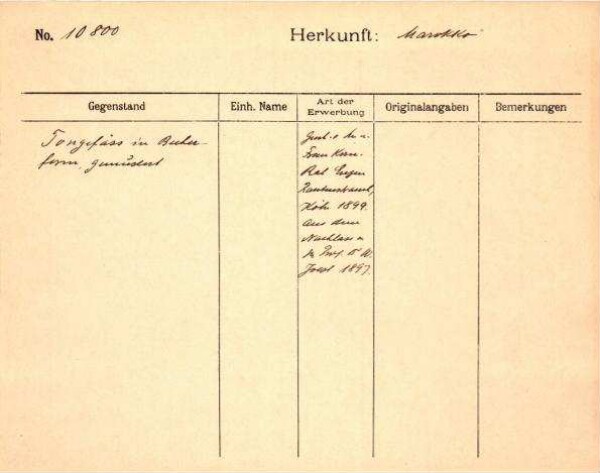 No. 10800
Herkunft: Marokko
Gegenstand
Einh. Name
Art der Erwerbung
Originalangaben
Bemerkungen
Tongefäss in Becher-
form, gemustert
Gesch. v. H. u.
Frau Kom.
Rat Eugen
Rautenstrauch,
Köln 1899.
aus dem
Nachlass v.
H. Prof. Dr. W.
Joest 1897.